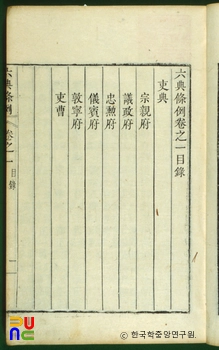 六典條例卷之一目錄
吏典
宗親府
議政府
忠勳府
儀賓府
敦寧府
吏曹
六典條例
卷之一
目錄
一
한국학중앙연구원